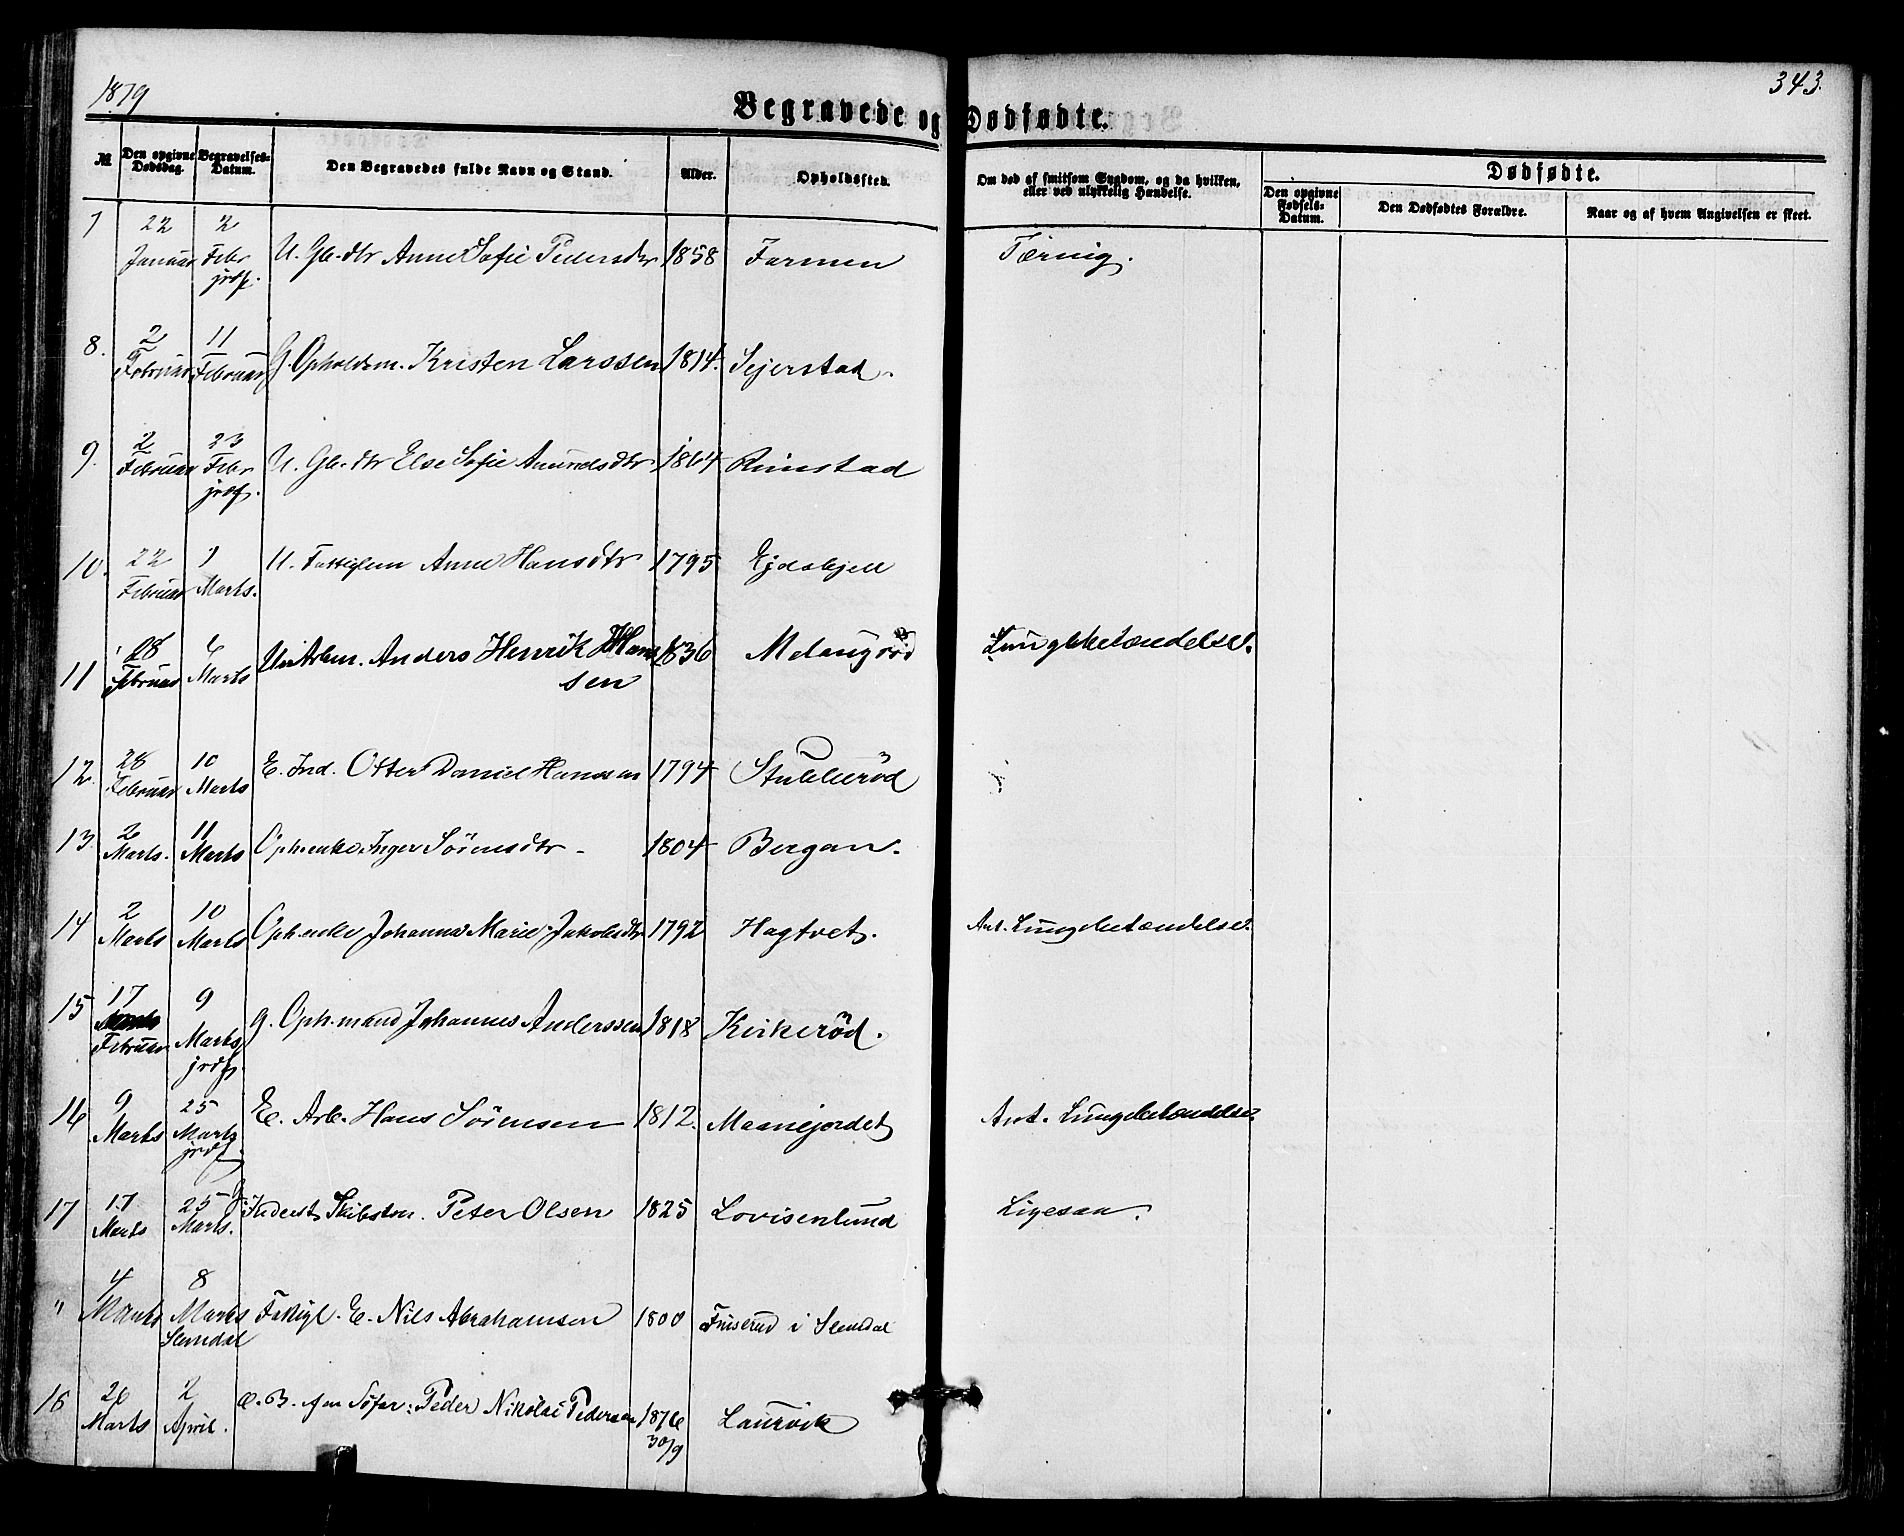 1879
343.
Begravede og Dødfødte.
№
Den opgivne Dødsdag.
Begravelses-Datum.
Den Begravedes fulde Navn og Stand.
Alder.
Opholdssted.
Om død af smitsom Sygdom, og da hvilken, eller ved ulykkelig Hændelse.
Dødfødte.
Den opgivne Fødsels-Datum.
Den Dødfødtes Forældre.
Naar og af hvem Angivelsen er skeet.
7 22 Januar 2 Febr jrdf. U. Gb. dtr Anne Sofie Pedersdtr 1858 Farmen Tæring.
8. 2 Februar 11 Februar G. Opholdsm. Kristen Larssen 1814. Sejerstad.
9. 2 Februar 23 Febr jrdf. U. Gb. dtr Else Sofie Amundsdtr 1864 Rimstad
10. 22 Februar 1 Marts. U. Fattiglem Anne Hansdtr 1795
11 28 Februar 6 Marts Arbm. Anders Henrik Hansen 1836 Melangrød Lungebetændelse.
12. 28 Februar 10 Marts E. Ind. Otter Daniel Hanssen 1794 Stubberød
13. 2 Marts. 11 Marts Oph.enke Inger Sörensdtr - 1804 Bergan.
14 2 Marts 10 Marts Oph.enke Johanne Marie Jakobsdtr 1792 Hagtvet. Ant. Lungebetændelse.
15 17 Februar 9 Marts jrdf. g. Oph.mand Johannes Anderssen 1818 Kirkerød.
16 9 Marts 25 Marts jrdf. E. Arb. Hans Sörensen 1812. Maanejordet Ant. Lungebetændelse.
17 17 Marts 25 Marts. Inderst Skibstm. Peter Olsen 1825 Lovisenlund Ligesaa.
" 4 Marts 8 Marts Slemdal Fattigl. E. Nils Abrahamsen 1800 i Slemdal
18 26 Marts 2 April. Søfar. Peder Nikolai Pederssen 1876 30/9 Laurvik